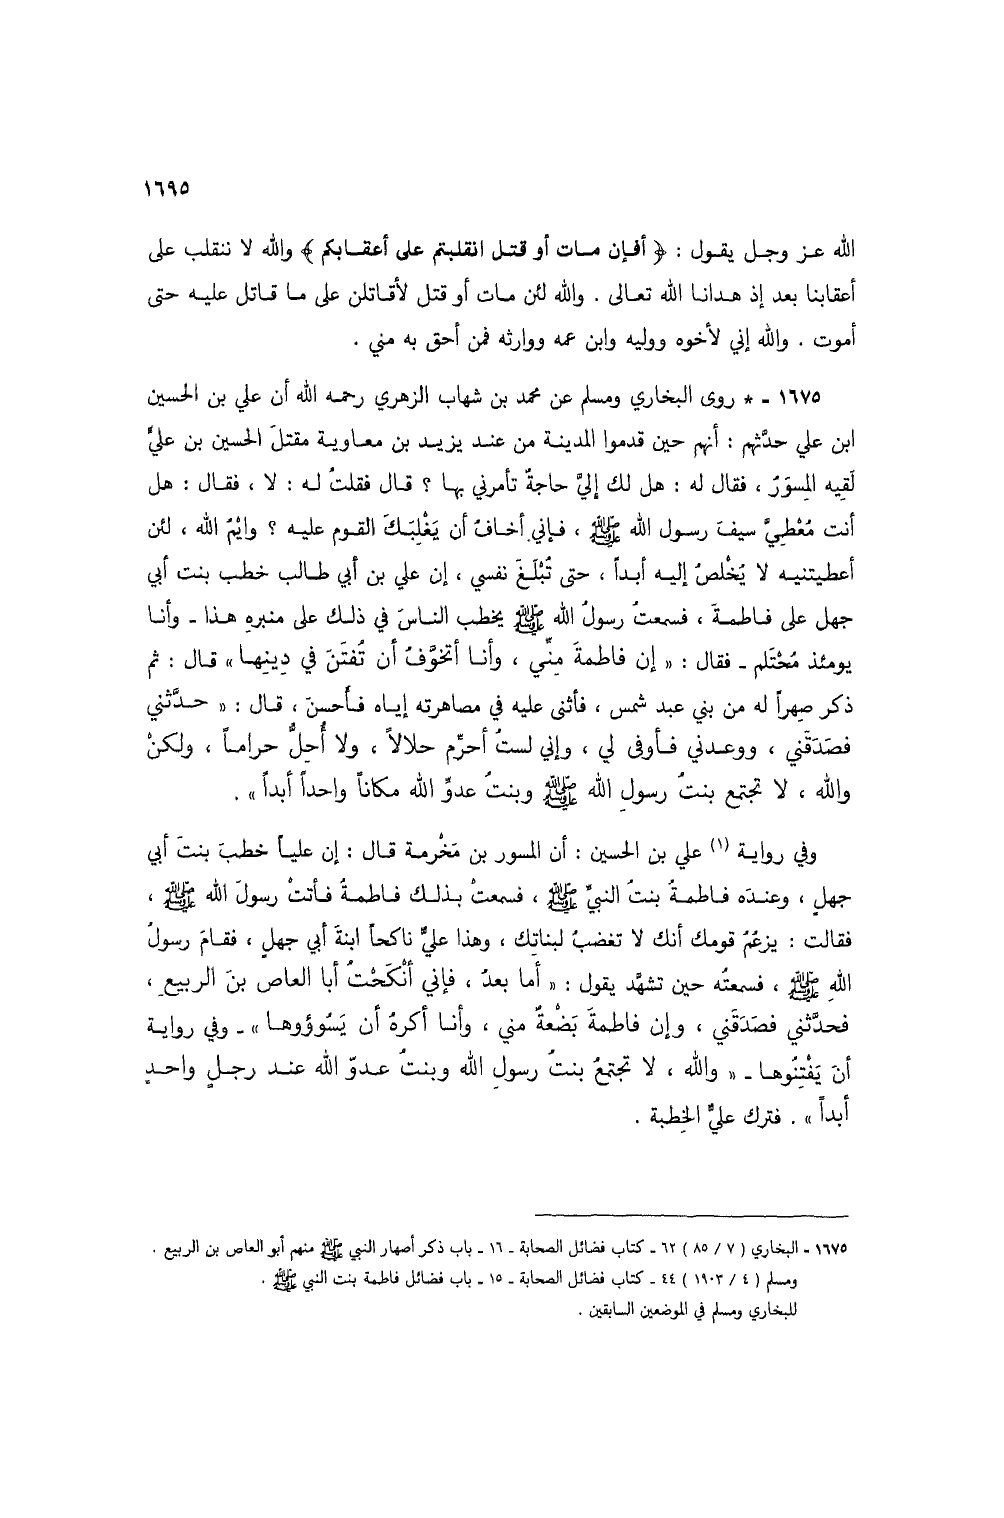 ١٦٩٥
الله عـز وجـل يقـول : ﴿ أفـإن مـات أو قتـل انقلبتم على أعقـابكم ﴾ والله لا ننقلب على
أعقابنا بعد إذ هـدانـا الله تعـالى . والله لئن مـات أو قتل لأقـاتلن على مـا قـاتل عليـه حتى
أموت . والله إني لأخوه ووليه وابن عمه ووارثه فمن أحق به مني .
١٦٧٥ - * روى البخاري ومسلم عن محمد بن شهاب الزهري رحمـه الله أن علي بن الحسين
ابن علي حدَّثهم : أنهم حين قدموا المدينـة من عنـد يزيـد بن معـاويـة مقتلَ الحسين بن عليٍّ
لَقِيه المِسوَرُ ، فقال له : هل لك إليَّ حاجةٌ تأمرني بهـا ؟ قـال فقلتُ لـه : لا ، فقـال : هل
أنت مُعْطِيَّ سيفَ رسـول الله ﷺ ، فـإني أخـافُ أن يَغْلِبَـكَ القـوم عليـه ؟ وايْمُ الله ، لئن
أعطيتنيـه لا يُخْلصُ إليـه أبـداً ، حتى تُبْلَغَ نفسي ، إن علي بن أبي طـالب خطب بنت أبي
جهل على فـاطمـةَ ، فسمعتُ رسولُ الله ﷺ يخطب النـاسَ في ذلـك على منبرهِ هـذا - وأنـا
يومئذ مُحْتَلم - فقال : « إن فاطمةَ مِنِّي ، وأنـا أتخوَّفُ أن تُفتَنَ في دِينِهـا » قـال : ثم
ذكر صِهراً له من بني عبد شمس ، فأثنى عليه في مصاهرته إيـاه فـأحسنَ ، قـال : « حـدَّثني
فصَدَقَني ، ووعـدني فـأوفى لي ، وإني لستُ أحرِّم حلالاً ، ولا أُحِلُّ حرامـاً ، ولكنْ
والله ، لا تجتمع بنتُ رسولِ الله ﷺ وبنتُ عدوِّ الله مكاناً واحداً أبداً » .
وفي روايـة (١) علي بن الحسين : أن المسور بن مَخْرمـة قـال : إن عليـاً خطبَ بنتَ أبي
جهلٍ ، وعنـدَه فـاطمـةُ بنتُ النبيِّ ﷺ ، فسمعتْ بـذلـك فـاطمـةُ فـأتتْ رسولَ الله ﷺ ،
فقالت : يزعُمُ قومك أنك لا تغضبُ لبناتِك ، وهذا عليٌّ ناكحاً ابنةَ أبي جهلٍ ، فقـامَ رسولُ
اللهِ ﷺ ، فسمعتُه حين تشهَّد يقول : « أما بعدُ ، فإني أنْكَحْتُ أبا العاص بنَ الربيعِ ،
فحدَّثني فصَدَقَني ، وإن فاطمةَ بَضْعةٌ مني ، وأنـا أكرهُ أن يَسُوؤوهـا » - وفي روايـة
أنَ يَفْتِنُوهـا - « والله ، لا تجتمعُ بنتُ رسولِ الله وبنتُ عـدوّ الله عنـد رجـلٍ واحـدٍ
أبداً » . فترك عليٌّ الخِطبة .
١٦٧٥ - البخاري ( ٧ / ٨٥ ) ٦٢ - كتاب فضائل الصحابة - ١٦ - باب ذكر أصهار النبي ﷺ منهم أبو العاص بن الربيع .
ومسلم ( ٤ / ١٩٠٣ ) ٤٤ - كتاب فضائل الصحابة - ١٥ - باب فضائل فاطمة بنت النبي ﷺ .
للبخاري ومسلم في الموضعين السابقين .